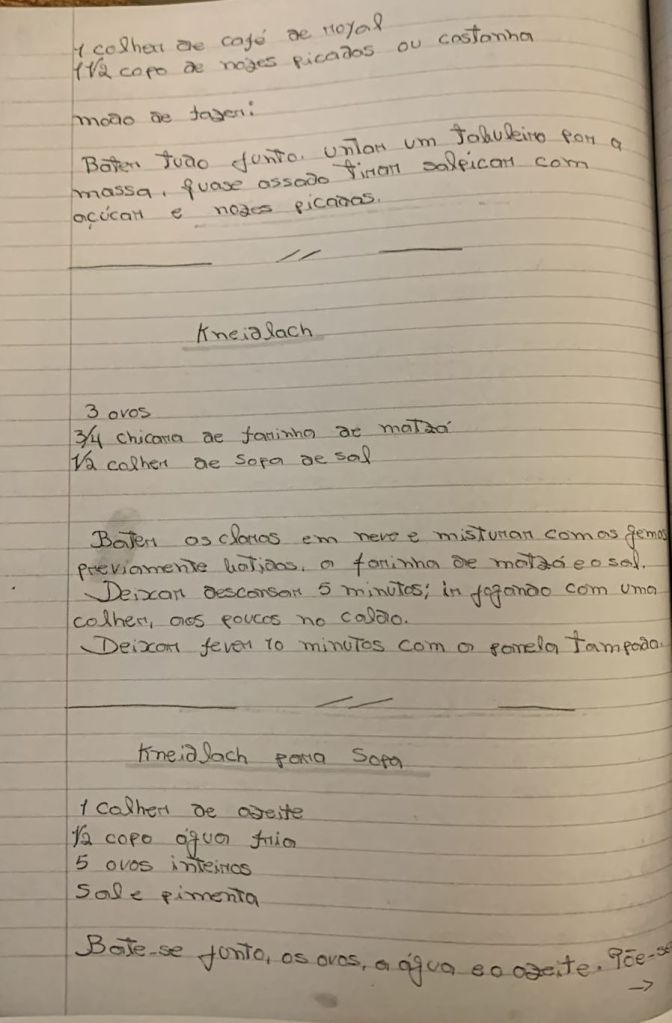 1 colher de café de royal
1 1/2 copo de nozes picadas ou castanha
modo de fazer:
Bater tudo junto, untar um tabuleiro por a
massa, quase assado tirar salpicar com
açúcar e nozes picadas.
Kneidlach
3 ovos
3/4 chicara de farinha de matzá
1/2 colher de sopa de sal
Bater os claras em neve e misturar com as gemas
previamente batidas, a farinha de matzá e o sal.
Deixar descansar 5 minutos; ir jogando com uma
colher, aos poucos no caldo.
Deixar ferver 10 minutos com a panela tampada.
Kneidlach para Sopa
1 colher de azeite
1/2 copo água fria
5 ovos inteiros
Sal e pimenta
Bate-se junto, os ovos, a água e o azeite. Põe-se
→